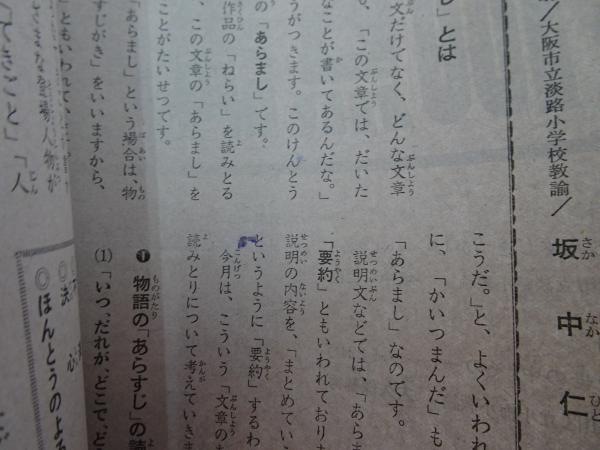 ／大阪市立淡路小学校教諭／
坂中仁
し」とは
文だけでなく、どんな文章
も、「この文章では、だいた
なことが書いてあるんだな。」
うがつきます。このけんとう
の「あらまし」です。
作品の「ねらい」を読みとる
、この文章の「あらまし」を
ことがたいせつです。
「あらまし」という場合は、物
すじがき」をいいますから、
ともいわれて
こうだ。」と、よくいわれ
に、「かいつまんだ」も
「あらまし」なのです。
説明文などでは、「あらま
「要約」ともいわれており
説明の内容を、「まとめてい
というように「要約」するわ
今月は、こういう「文章の
読みとりについて考えていきま
❶ 物語の「あらすじ」の読
(1)「いつ、だれが、どこで、ど
できごと」「人
◎ほんとうのよろ